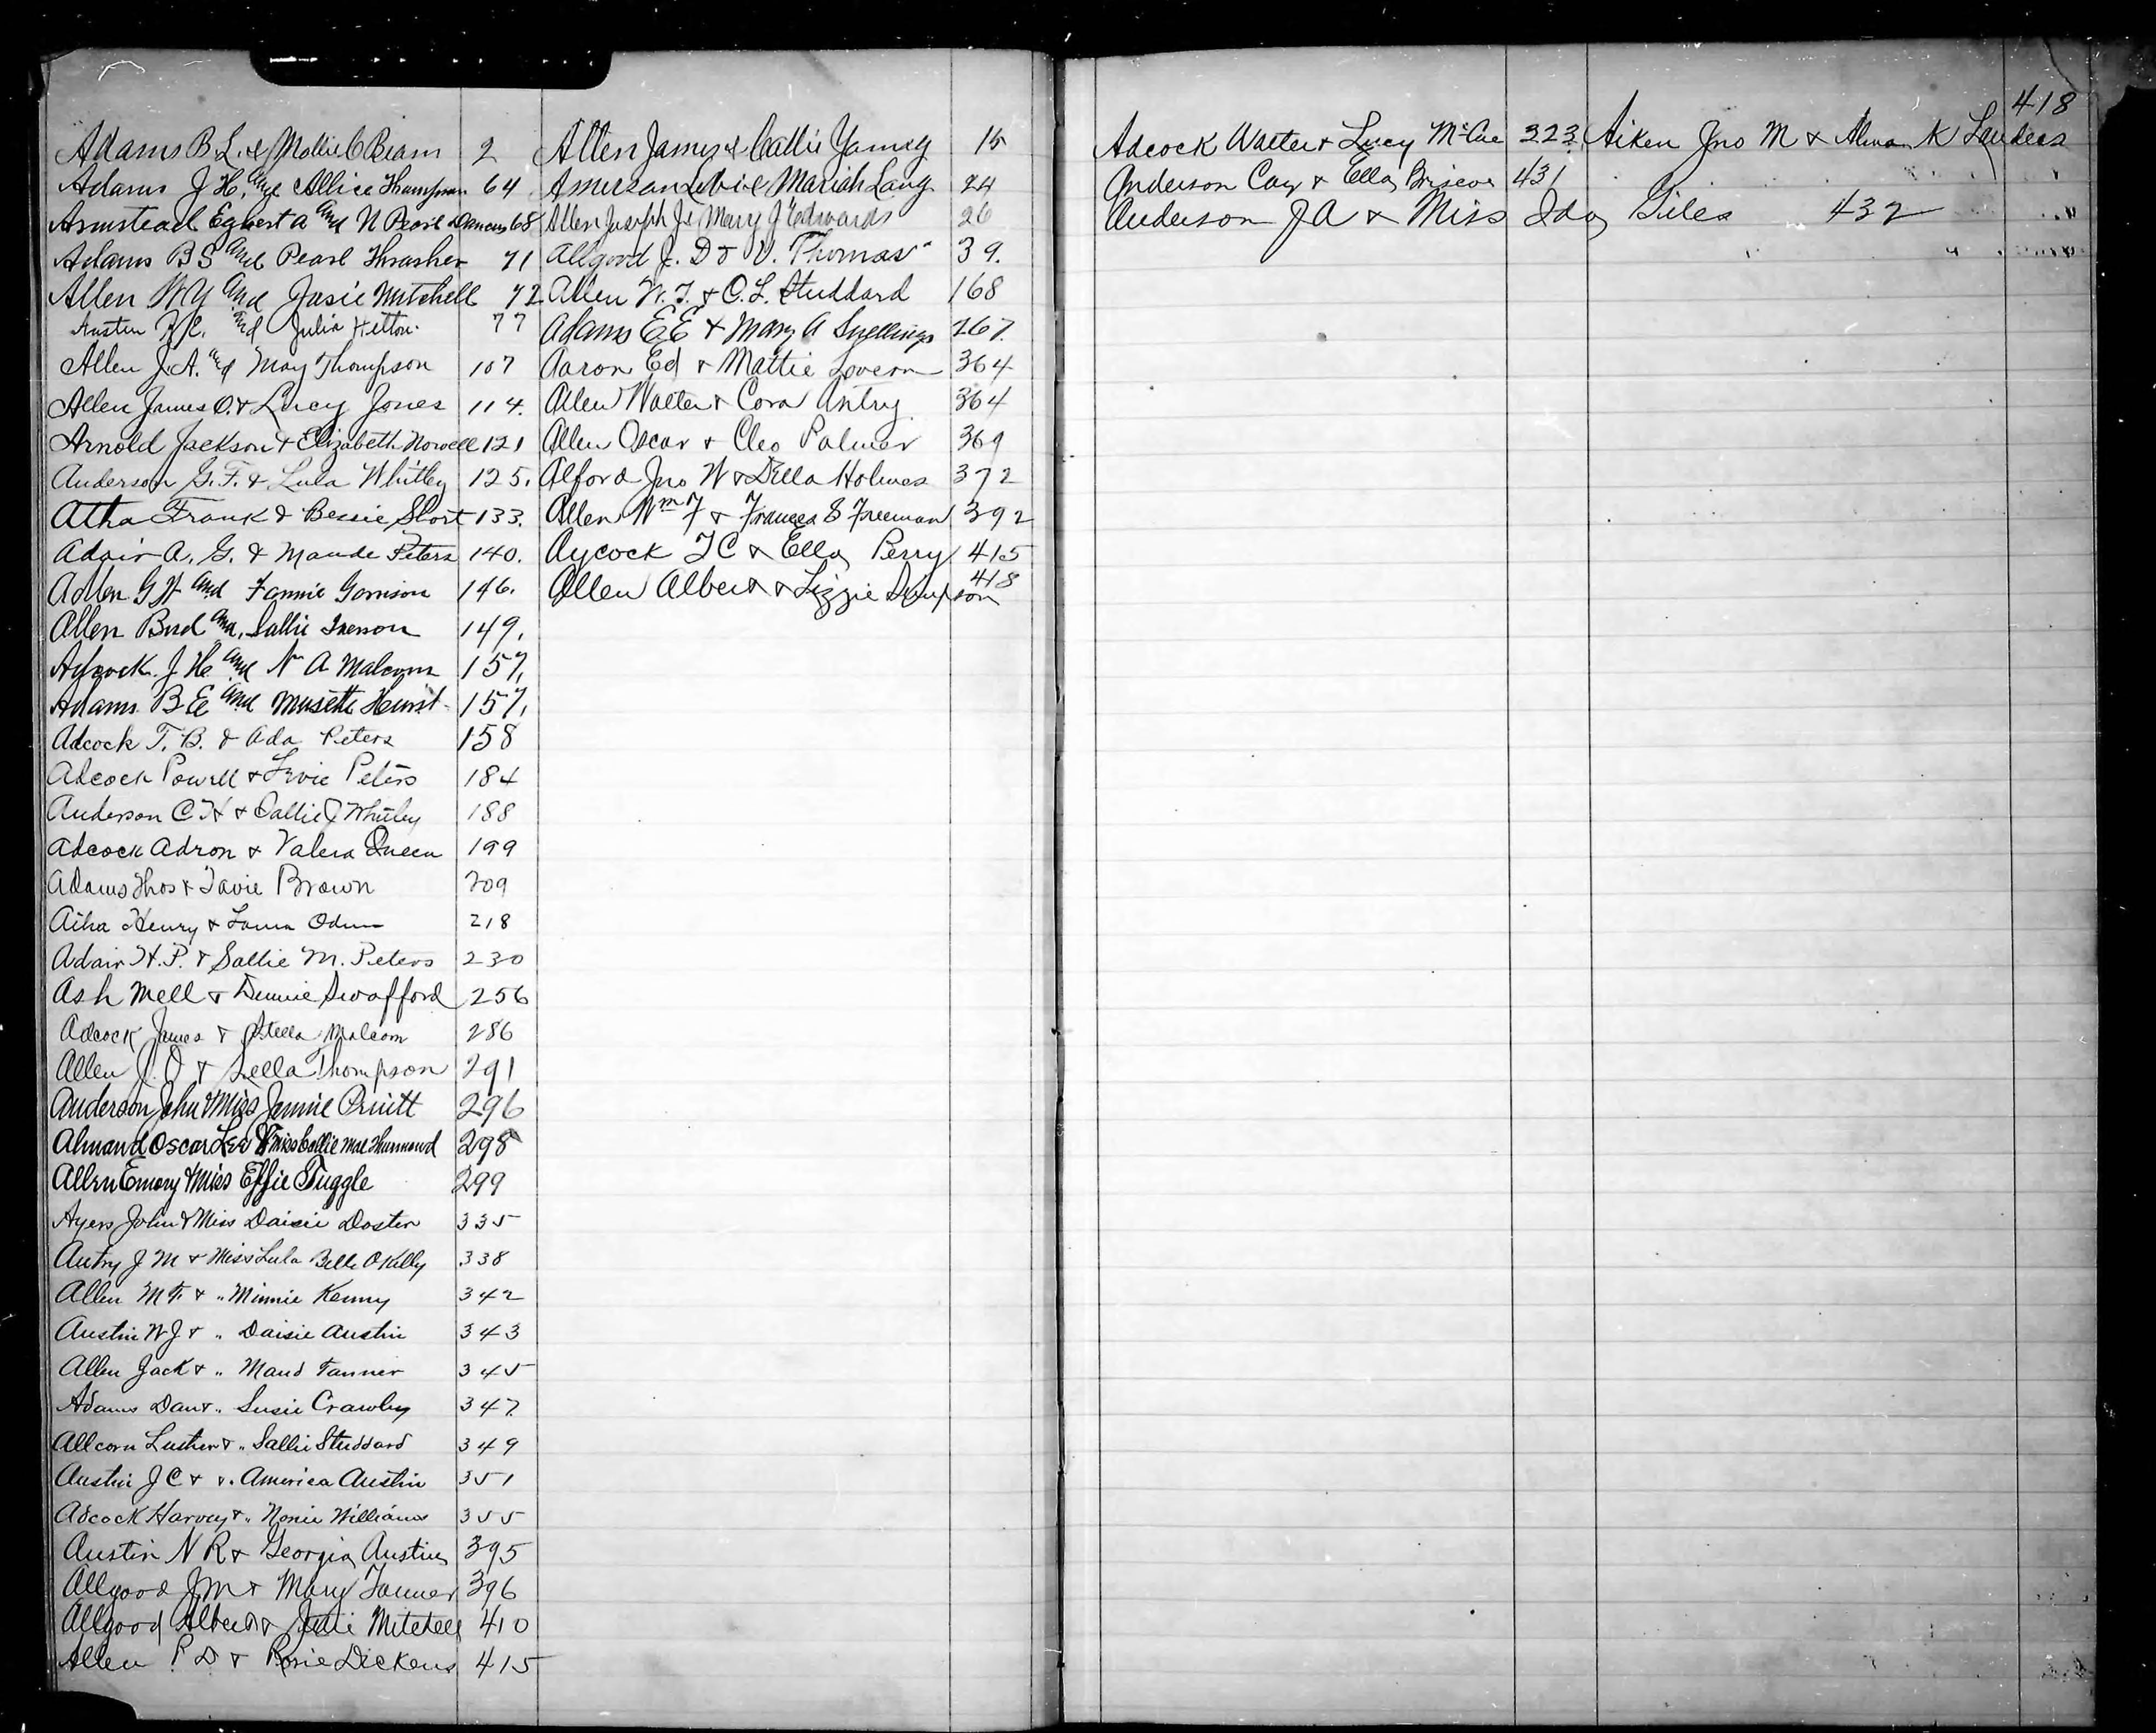 Adams B. L. & Mollie C Beam 2
Adams J. H. and Allice Thompson 64
Armstead Egbert A and N Pearl Dancus 68
Adams B S and Pearl Thrasher 71
Allen W Y and Josie Mitchell 72
Austin R. C. and Julia Hilton 77
Allen J. A. and May Thompson 107
Allen James O. & Lucy Jones 114.
Arnold Jackson & Elizabeth Nowell 121
Anderson G. F. & Lula Whitley 125.
Atha Frank & Bessie Short 133.
Adair A. G. & Maude Peters 140.
Allen G H and Fannie Garrison 146.
Allen Bud and Sallie Iverson 149.
Aycock J H and N A Malcom 157.
Adams B E and Musette Hurst 157.
Adcock T. B. & Ada Peters 158
Adcock Powell & Levie Peters 184
Anderson C H & Sallie J Whitley 188
Adcock Adron & Valera Queen 199
Adams Thos & Tavie Brown 209
Atha Henry & Laura Odum 218
Adair H. P. & Sallie M. Peters 230
Ash Mell & Dennie Swafford 256
Adcock James & Stella Malcom 286
Allen J. O & Lella Thompson 291
Anderson John & Miss Jannie Pruitt 296
Almand Oscar Lee & Miss Callie Mae Thurmond 298
Allen Emory & Miss Effie Tuggle 299
Ayers John & Miss Daisie Doster 335
Autry J M & Miss Lula Belle OKelly 338
Allen M F. & " Minnie Kenny 342
Austin W J & " Daisie Austin 343
Allen Jack & " Maud Tanner 345
Adams Dan & " Susie Crawley 347
Allcorn Luther & " Sallie Studdard 349
Austin J C & " America Austin 351
Adcock Harvey & " Nonie Williams 355
Austin N R & Georgia Austin 395
Allgood J M & Mary Tanner 396
Allgood Albert & Julie Mitchell 410
Allen P D & Rosie Dickens 415
Allen James & Callie Young 15
Amerson Levi & Mariah Lang 24
Allen Joseph Jr & Mary J Edwards 26
Allgood J. D & V. Thomas 39.
Allen W. T. & O. L. Studdard 168
Adams E E & Mary A Snellings 267.
Aaron Ed & Mattie Lovern 364
Allen Walter & Cora Antry 364
Allen Oscar & Cleo Palmer 369
Alford Jno W & Della Holmes 372
Allen Wm F & Frances S Freeman 392
Aycock T C & Ella Perry 415
Allen Albert & Lizzie Simpson 418
Adcock Walter & Lucy McCae 323
Anderson Cay & Ella Briscoe 431
Anderson J A & Miss Ida Giles 432
Aiken Jno M & Alma K Landers 418